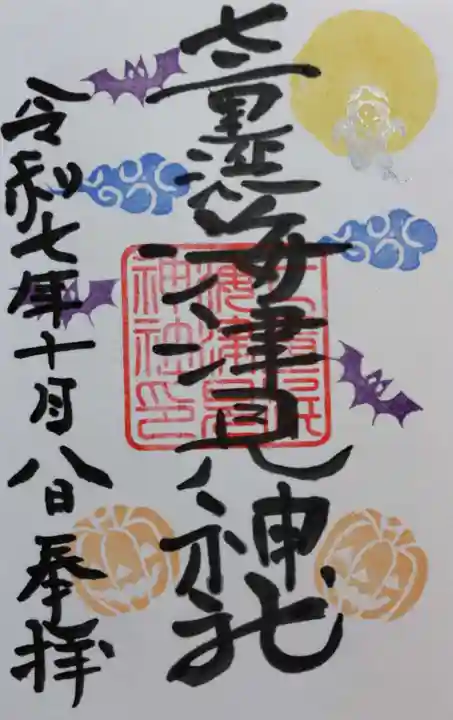 七重浜海津見神社
海津見
神社印
令和七年十月八日奉拝